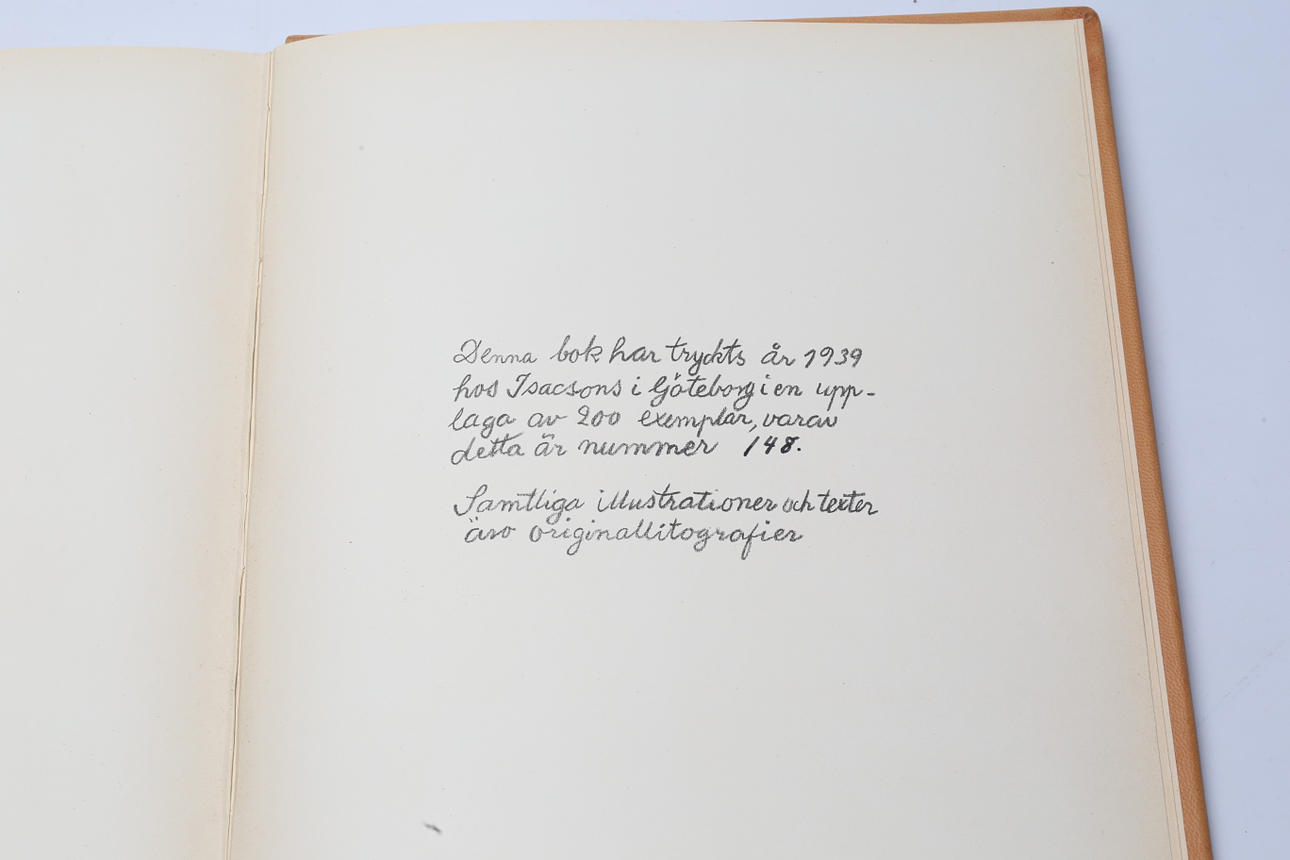 Denna bok har tryckts år 1939
hos Isacsons i Göteborg i en upp-
laga av 200 exemplar, varav
detta är nummer 148.
Samtliga illustrationer och texter
äro originallitografier